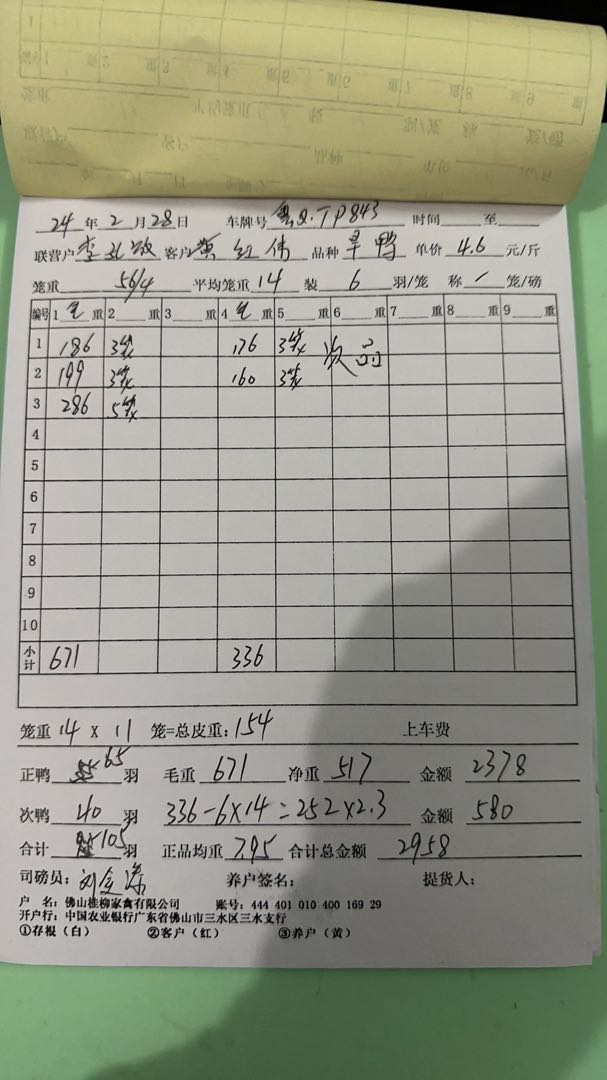 24 年 2 月 28 日 车牌号 粤Q·TP843 时间 至
联营户 李 客户 黄红伟 品种 旱鸭 单价 4.6 元/斤
笼重 56/4 平均笼重 14 装 6 羽/笼 称 1 笼/磅
编号 1 毛 重 2 重 3 重 4 毛 重 5 重 6 重 7 重 8 重 9 重
1 186 3笼 176 3笼 次品
2 199 3笼 160 3笼
3 286 5笼
4
5
6
7
8
9
10
小计 671 336
笼重 14 x 11 笼=总皮重: 154 上车费
正鸭 65 羽 毛重 671 净重 517 金额 2378
次鸭 40 羽 336-6x14=252x2.3 金额 580
合计 105 羽 正品均重 7.95 合计总金额 2958
司磅员: 刘 养户签名: 提货人:
户 名: 佛山桂柳家禽有限公司 账号: 444 401 010 400 169 29
开户行: 中国农业银行广东省佛山市三水区三水支行
①存根(白) ②客户(红) ③养户(黄)